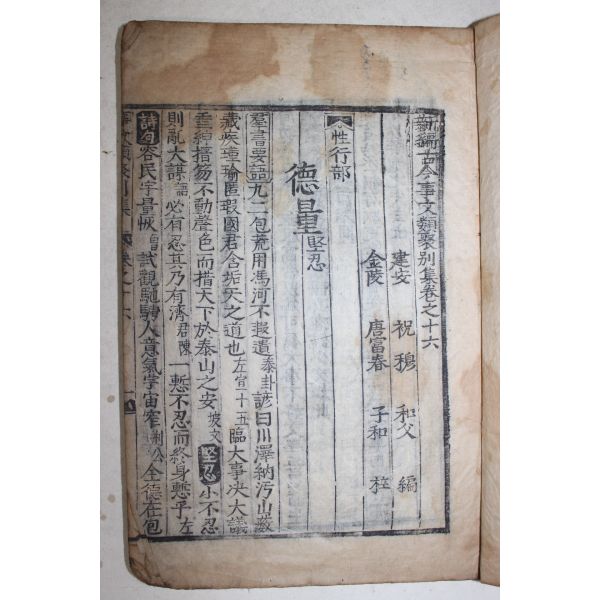 新編古今事文類聚別集卷之十六
建安 祝穆 和父 編
金陵 唐富春 子和 梓
性行部
德量 堅忍
羣書要語九二包荒用馮河不遐遺泰卦諺曰川澤納污山藪
藏疾瑾瑜匿瑕國君含垢天之道也左宣十五臨大事决大議
垂紳搢笏不動聲色而措天下於泰山之安坡文堅忍小不忍
則亂大謀語必有忍其乃有濟君陳一慙不忍而終身慙乎左
詩句容民字量恢曾試觀隨騎人意氣宇宙窄荆公全德在包
事文類聚別集 卷之十六 一